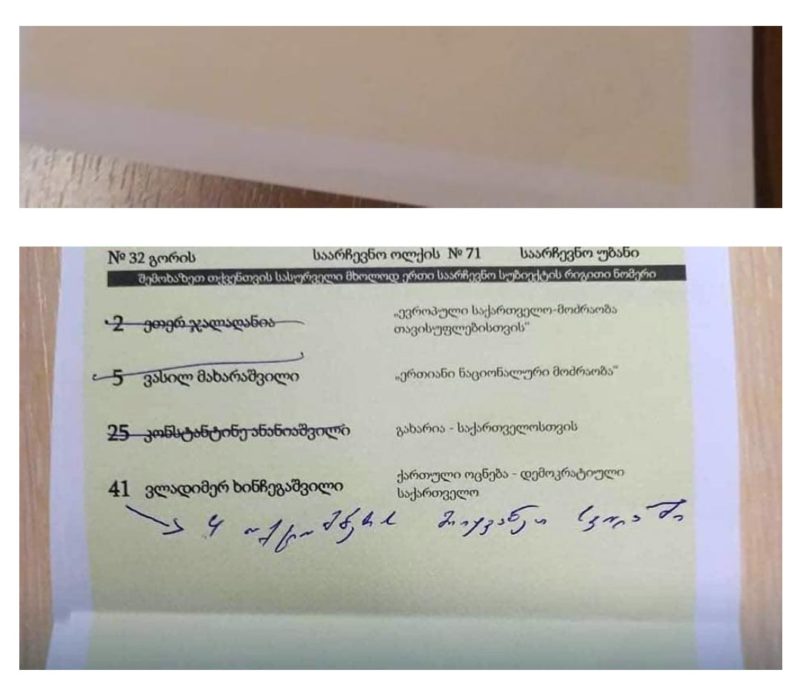 № 32 გორის საარჩევნო ოლქის № 71 საარჩევნო უბანი
შემოხაზეთ თქვენთვის სასურველი მხოლოდ ერთი საარჩევნო სუბიექტის რიგითი ნომერი
2 ეთერ ჯალაღანია
„ევროპული საქართველო-მოძრაობა
თავისუფლებისთვის“
5 ვასილ მახარაშვილი „ერთიანი ნაციონალური მოძრაობა“
25 კონსტანტინე ანანიაშვილი გახარია - საქართველოსთვის
41 ვლადიმერ ხინჩეგაშვილი
ქართული ოცნება - დემოკრატიული
საქართველო
4 ოქტომბერს